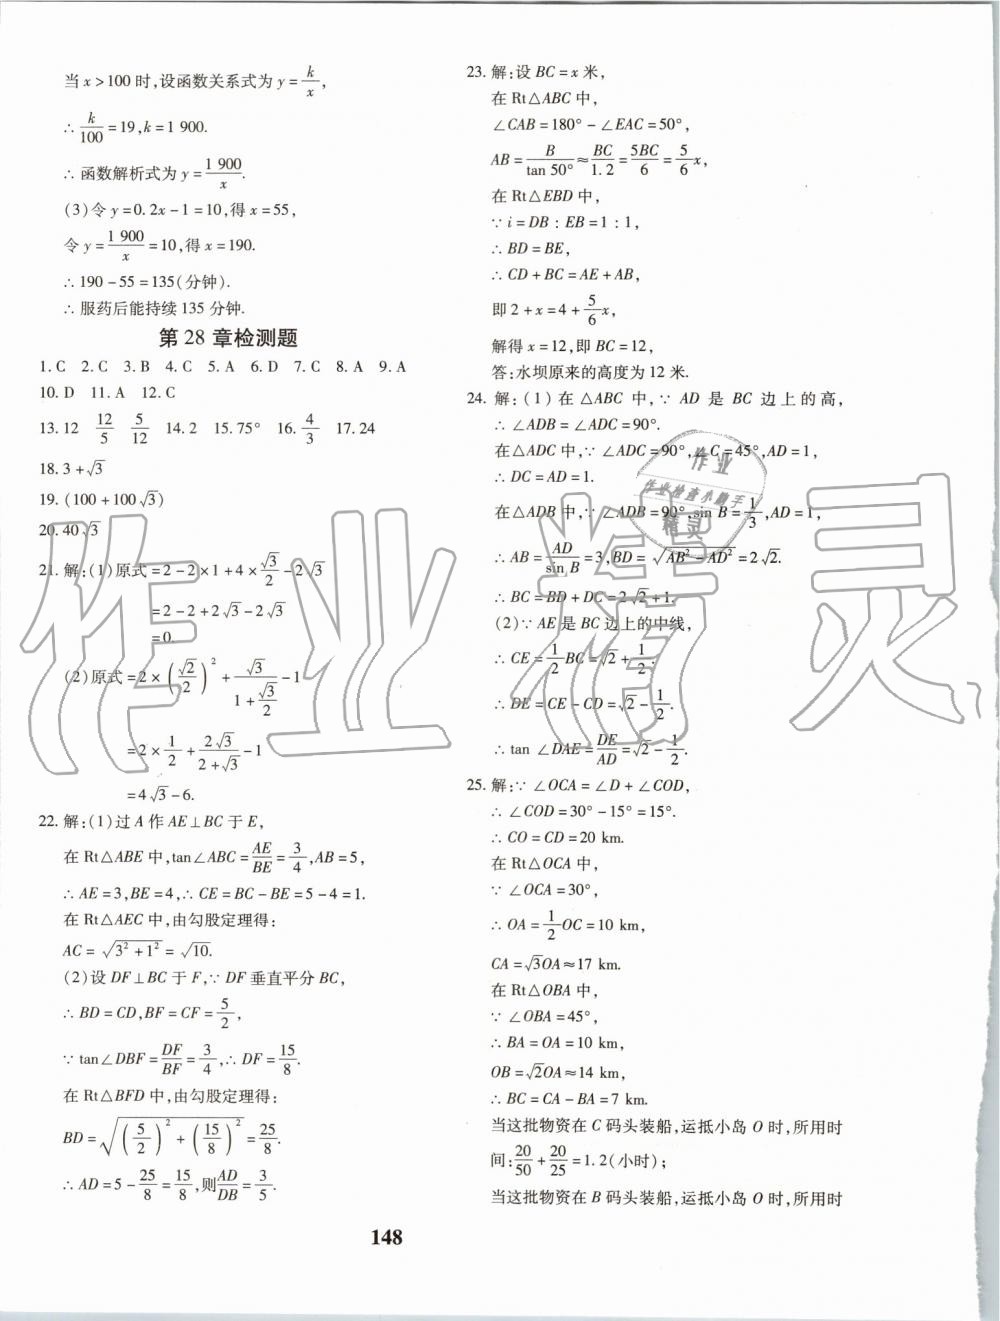 当x>100时,设函数关系式为y=k/x,
∴k/100=19,k=1 900.
∴函数解析式为y=1 900/x.
(3)令y=0.2x-1=10,得x=55,
令y=1 900/x=10,得x=190.
∴190-55=135(分钟).
∴服药后能持续135分钟.
第28章检测题
1.C 2.C 3.B 4.C 5.A 6.D 7.C 8.A 9.A
10.D 11.A 12.C
13.12 12/5 5/12 14.2 15.75° 16.4/3 17.24
18.3+√3
19.(100+100√3)
20.40√3
21.解:(1)原式=2-2×1+4×√3/2-2√3
=2-2+2√3-2√3
=0.
(2)原式=2×(√2/2)²+√3/(1+√3/2)-1
=2×1/2+2√3/(2+√3)-1
=4√3-6.
22.解:(1)过A作AE⊥BC于E,
在Rt△ABE中,tan∠ABC=AE/BE=3/4,AB=5,
∴AE=3,BE=4,∴CE=BC-BE=5-4=1.
在Rt△AEC中,由勾股定理得:
AC=√(3²+1²)=√10.
(2)设DF⊥BC于F,∵DF垂直平分BC,
∴BD=CD,BF=CF=5/2,
∵tan∠DBF=DF/BF=3/4,∴DF=15/8.
在Rt△BFD中,由勾股定理得:
BD=√((5/2)²+(15/8)²)=25/8.
∴AD=5-25/8=15/8,则AD/DB=3/5.
148
23.解:设BC=x米,
在Rt△ABC中,
∠CAB=180°-∠EAC=50°,
AB=B/tan 50°≈BC/1.2=5BC/6=5/6x,
在Rt△EBD中,
∵i=DB:EB=1:1,
∴BD=BE,
∴CD+BC=AE+AB,
即2+x=4+5/6x,
解得x=12,即BC=12,
答:水坝原来的高度为12米.
24.解:(1)在△ABC中,∵AD是BC边上的高,
∴∠ADB=∠ADC=90°.
在△ADC中,∵∠ADC=90°,∠C=45°,AD=1,
∴DC=AD=1.
在△ADB中,∵∠ADB=90°,sin B=1/3,AD=1,
∴AB=AD/sin B=3,BD=√(AB²-AD²)=2√2.
∴BC=BD+DC=2√2+1.
(2)∵AE是BC边上的中线,
∴CE=1/2BC=√2+1/2.
∴DE=CE-CD=√2-1/2.
∴tan∠DAE=DE/AD=√2-1/2.
25.解:∵∠OCA=∠D+∠COD,
∴∠COD=30°-15°=15°.
∴CO=CD=20 km.
在Rt△OCA中,
∵∠OCA=30°,
∴OA=1/2OC=10 km,
CA=√3OA≈17 km.
在Rt△OBA中,
∵∠OBA=45°,
∴BA=OA=10 km,
OB=√2OA≈14 km,
∴BC=CA-BA=7 km.
当这批物资在C码头装船,运抵小岛O时,所用时
间:20/50+20/25=1.2(小时);
当这批物资在B码头装船,运抵小岛O时,所用时
作业精灵
作业
作业检查小助手
精灵